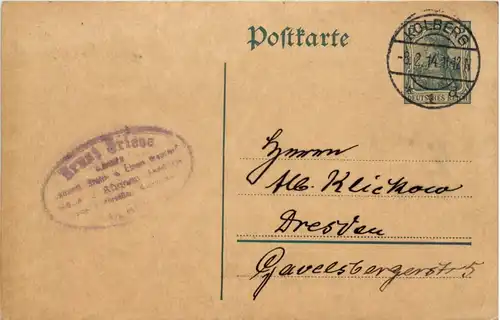 Postkarte
KOLBERG
-8.2.14.11-12N
DEUTSCHES REICH
Ernst Friese
Herrn
Alb. Klickow
Dresden
Gavelsbergerstr 5